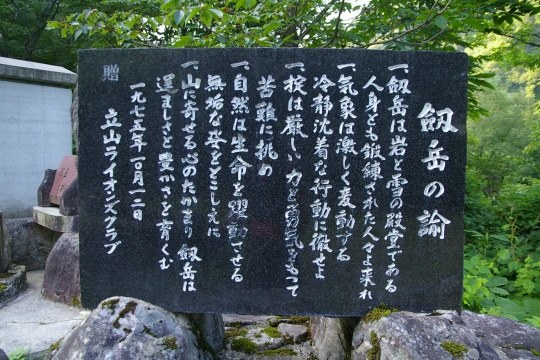 劔岳の諭
一、劔岳は岩と雪の殿堂である
人身とも鍛錬された人々よ来れ
一、気象は激しく変動する
冷静沈着な行動に徹せよ
一、掟は厳しい力と勇気をもって
苦難に挑め
一、自然は生命を躍動させる
無垢な姿をとこしえに
一、山に寄せる心のたかまり劔岳は
逞ましさと豊かさを育くむ
一九七五年一月一二日
贈 立山ライオンズクラブ